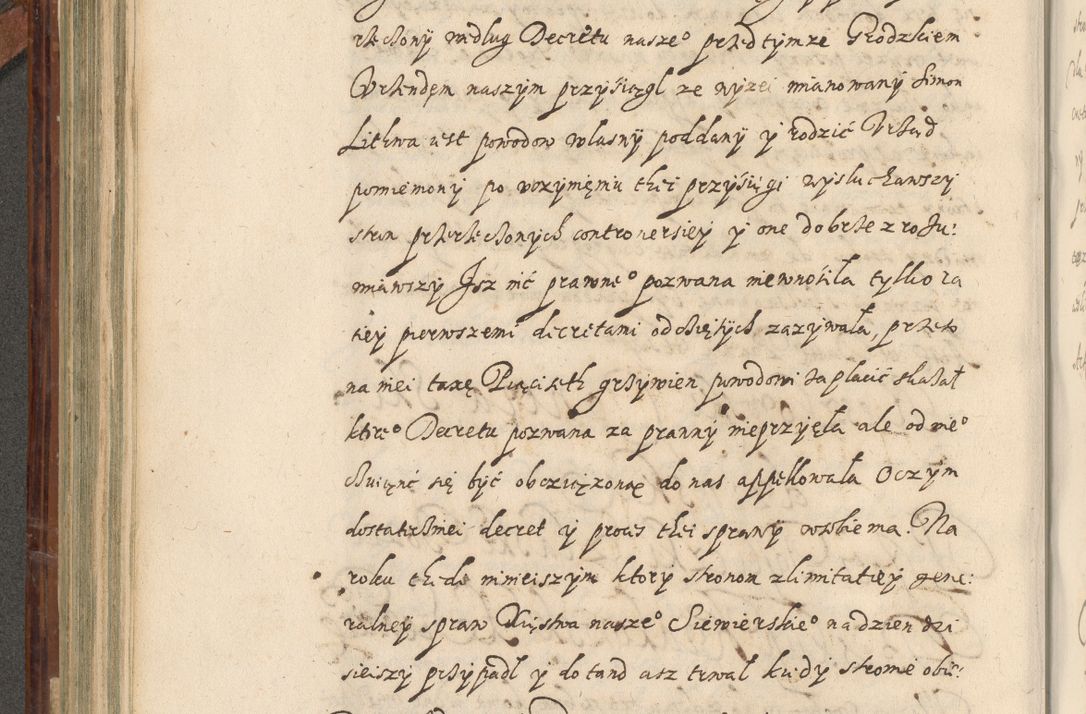 rzeczony według Decretu nasze° przed tymze Grodzkiem
Vrzendęm naszym przysiągł ze wyzei mianowany Simon
Litkwa iest powodow własny poddany y rodzić Vrząd
pomiemony po wozymęmu thei przysięgi wysluchawszy
stron przerzeczonych controuersiey y one dobrze zrozu:
miawszy Jsz nić prawne° pozwana niewnosiła tylko za
tey pierwszemi decretami odcziętych zazywała, przeto
na niei taxę Pięćiseth grzywien powodowi zapłacić skazał
które° Decretu pozwana za prawny nieprzyięła ale od nie°
czuiąnć się być obcziązoną do nas appellowała O czym
dostatecznei decret y proces thei sprawy w sobie ma. Na
roku th.de ninieiszym ktory stronom z limitatiey gene:
ralney spraw Xięstwa nasze° Siewierskie° na dzien dzi
sieiszy przypadł y dotand asz trwał kiedy stronie obie: